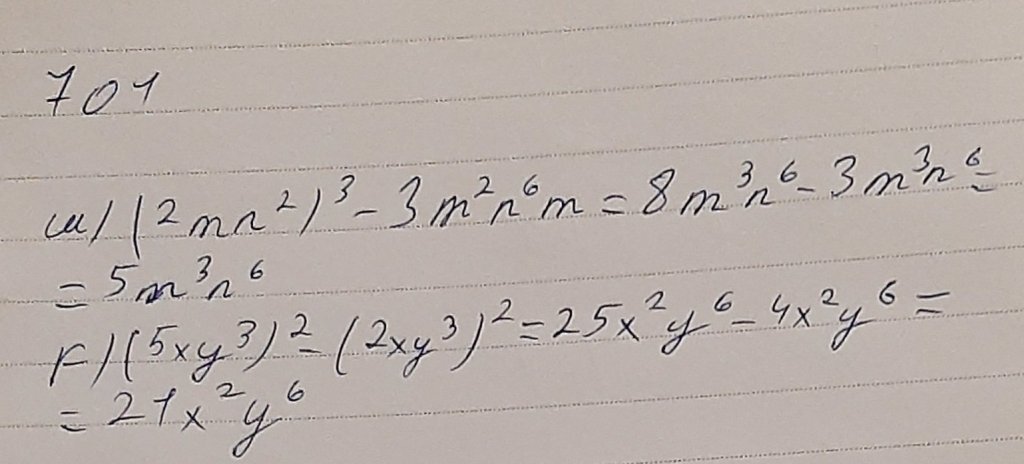 701
а) (2mn²)³ - 3m²n⁶m = 8m³n⁶ - 3m³n⁶ =
= 5m³n⁶
г) (5xy³)² - (2xy³)² = 25x²y⁶ - 4x²y⁶ =
= 21x²y⁶